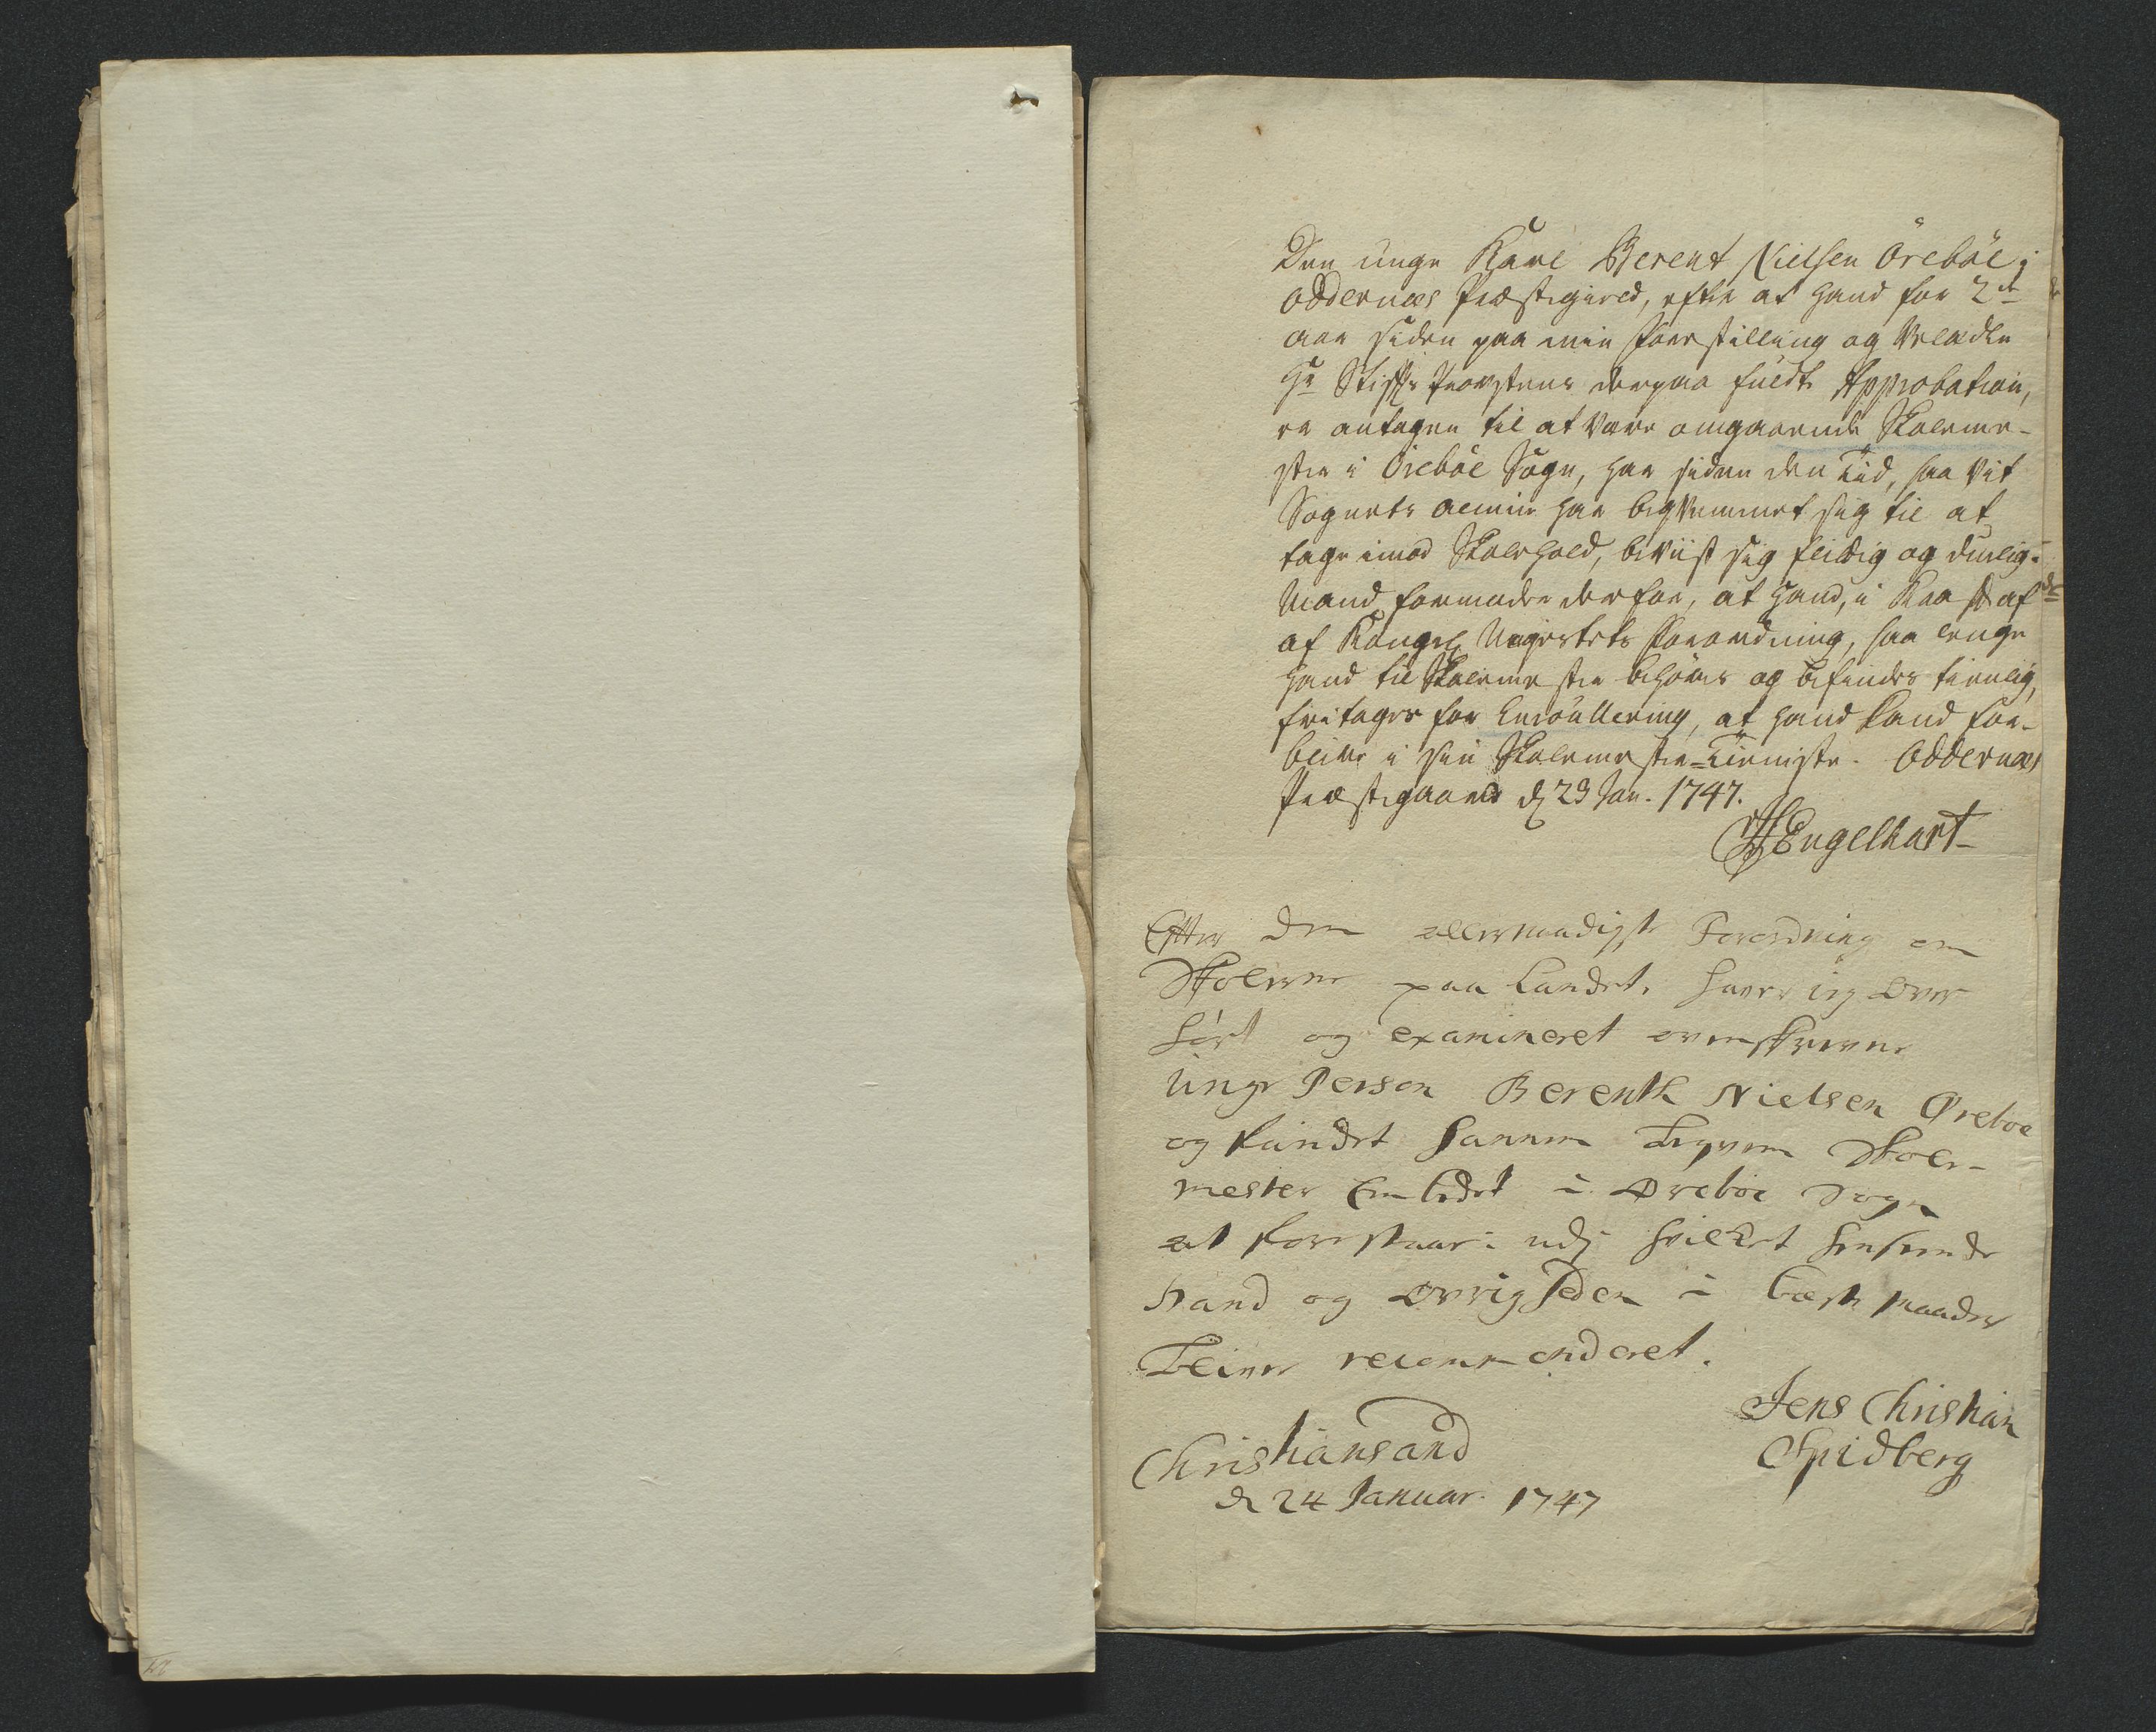 Den unge Karl Berent Nielsen Öreböe i
Oddernæs Præstegield, efter at hand for 2de
aar siden paa min Forestilling og VelEdle
Hr Stifts Provstens derpaa fuldte Approbation,
er antagen til at være omgaaende Skoleme-
ster i Öreböe Sogn, har siden den Tiid, saa vit
Sognets almue har beqvemmet sig til at
tage imod Skolehold, beviist sig flittig og duelig.
Mand formoder derfor, at hand, i Kraft af
af Kongel Mayestets Forordning, saa lenge
hand til Skolemester behöves og befindes tienlig,
fritages for Enroullering, at hand kand for-
blive i sin Skolemester-Tieniste. Oddernæs
Præstegaard d 23 Jan. 1747.
HEngelhart
Efter den allernaadigste Forordning om
Skolerne paa Landet, haver jeg over
hört og examineret ovenskrevne
unge Person Berenth Nielsen Øreboe
og fundet hannem beqvem Skole-
mester Embedet i Øreboe Sogn
at forestaae: udj hvilket henseende
hand og Øvrigheden i beste maader
bliver recommenderet.
Christiansand
d 24 Januar. 1747
Jens Christian
Spidberg